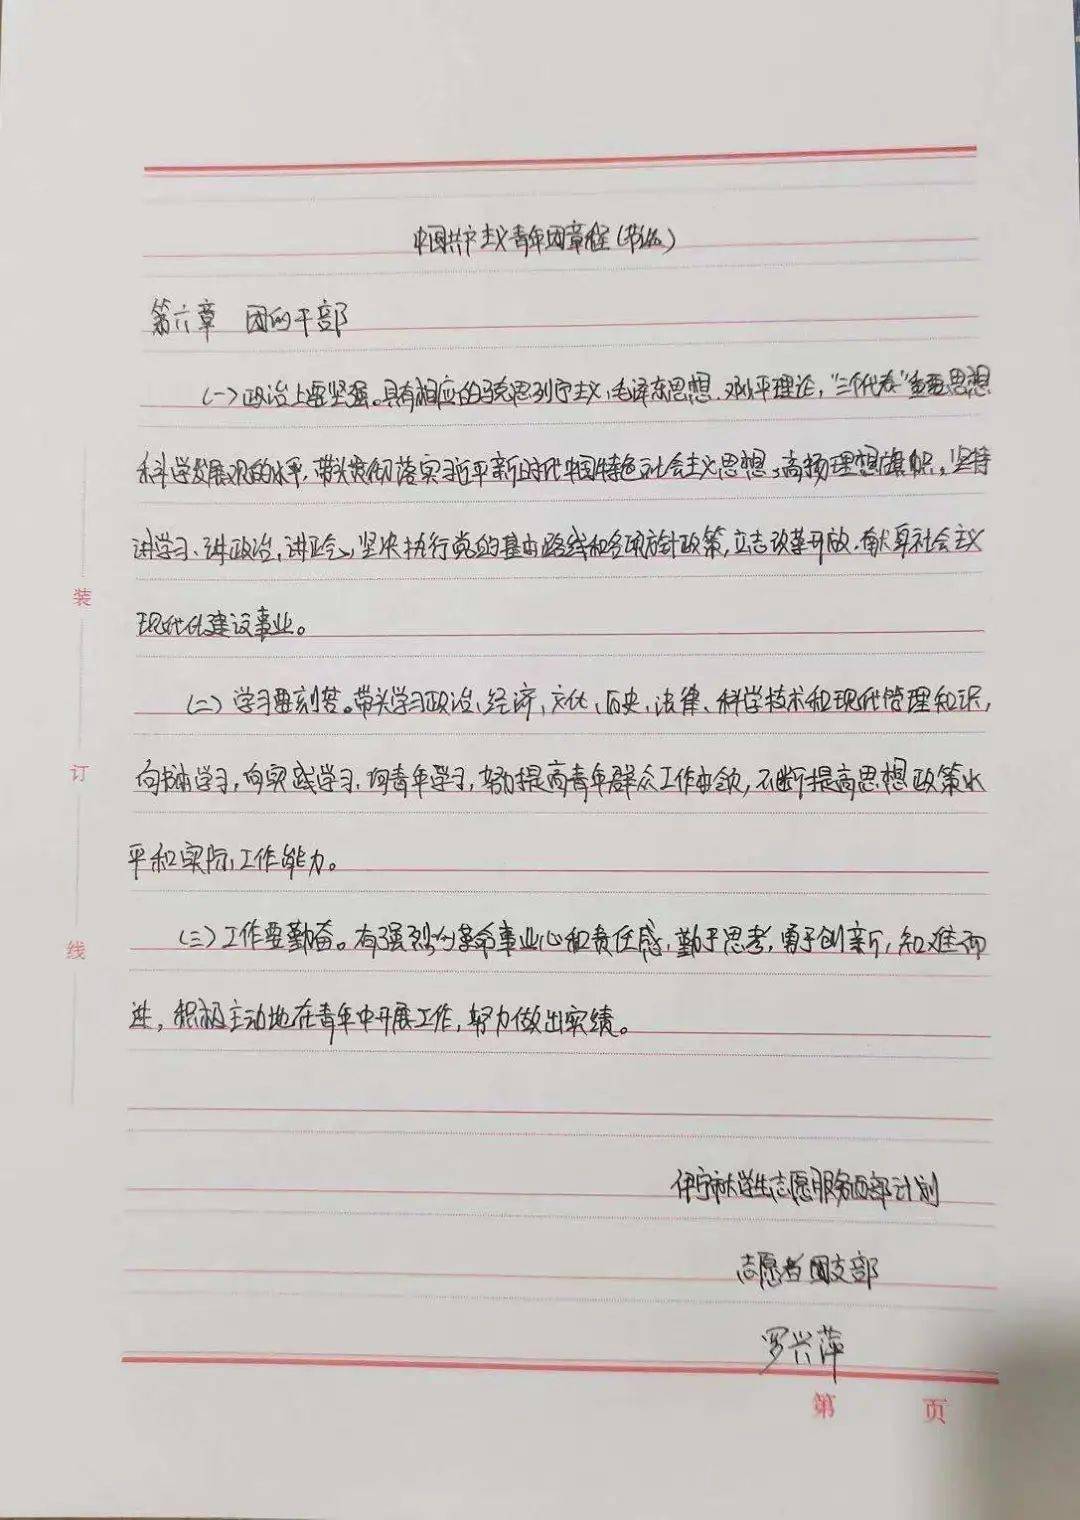 中国共产主义青年团章程(节选)
第六章 团的干部
(一)政治上要坚强。具有相应的马克思列宁主义,毛泽东思想.邓小平理论,“三个代表”重要思想
科学发展观的水平,带头贯彻落实习近平新时代中国特色社会主义思想,高扬理想旗帜,坚持
讲学习、讲政治,讲正气,坚决执行党的基本路线和各项方针政策,立志改革开放.献身社会主义
现代化建设事业。
(二)学习要刻苦。带头学习政治,经济,文化,历史,法律、科学技术和现代管理知识,
向书本学习,向实践学习,向青年学习,努力提高青年群众工作本领,不断提高思想政策水
平和实际工作能力。
(三)工作要勤奋。有强烈的革命事业心和责任感,勤于思考,勇于创新,知难而
进,积极主动地在青年中开展工作,努力做出实绩。
伊宁市大学生志愿服务西部计划
志愿者团支部
罗兴萍
装
订
线
第 页